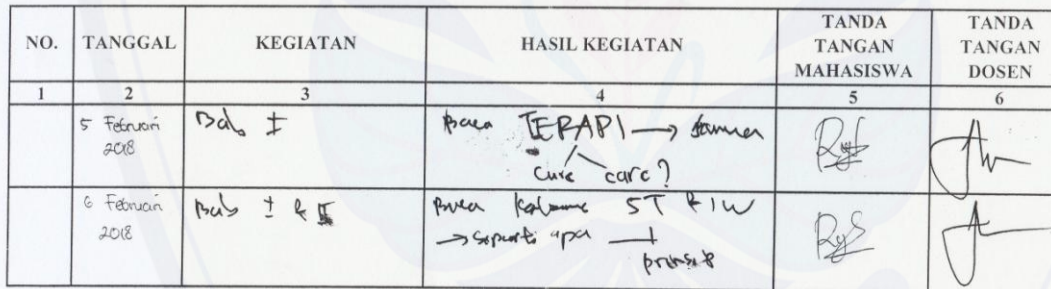 NO. TANGGAL KEGIATAN HASIL KEGIATAN TANDA TANGAN MAHASISWA TANDA TANGAN DOSEN
1 2 3 4 5 6
5 Februari 2018 Bab I Baca TERAPI →
cure care?
6 Februari 2018 Bab I & II
→ seperti apa